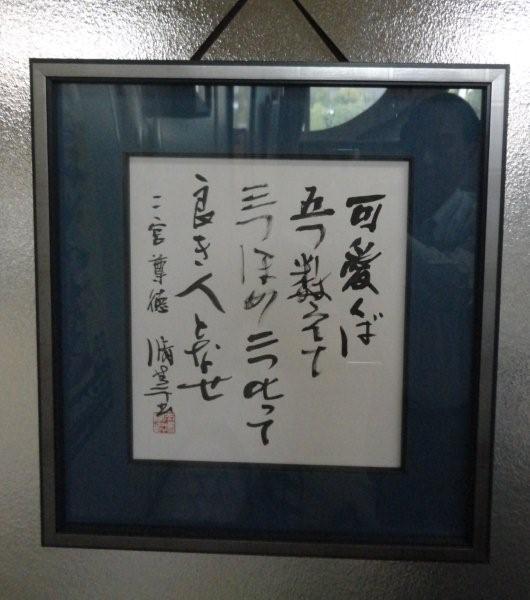 可愛くば
五つ数えて
三つほめ 二つ叱って
良き人となせ
二宮尊徳